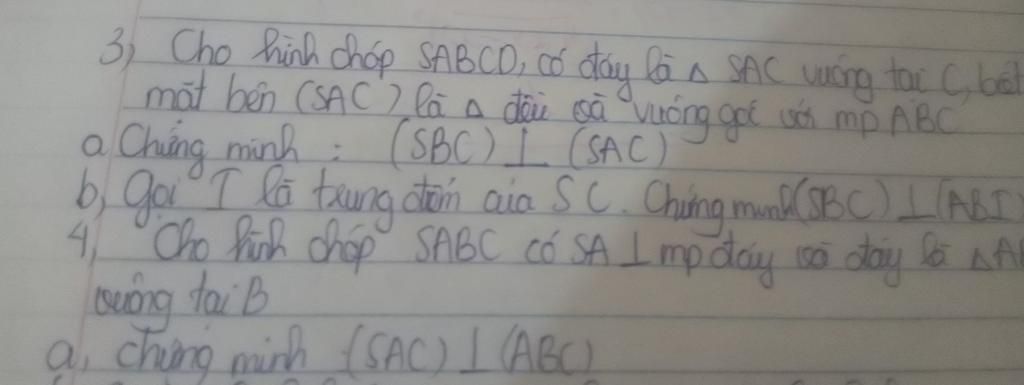 3) Cho hình chóp SABCD, có đáy là Δ SAC vuông tại C, biết
mặt bên (SAC) là Δ đều và vuông góc với mp ABC
a Chứng minh : (SBC) ⊥ (SAC)
b, gọi I là trung điểm của SC. Chứng minh (SBC) ⊥ (ABI)
4, Cho hình chóp SABC có SA ⊥ mp đáy có đáy là Δ
vuông tại B
a, chứng minh (SAC) ⊥ (ABC)